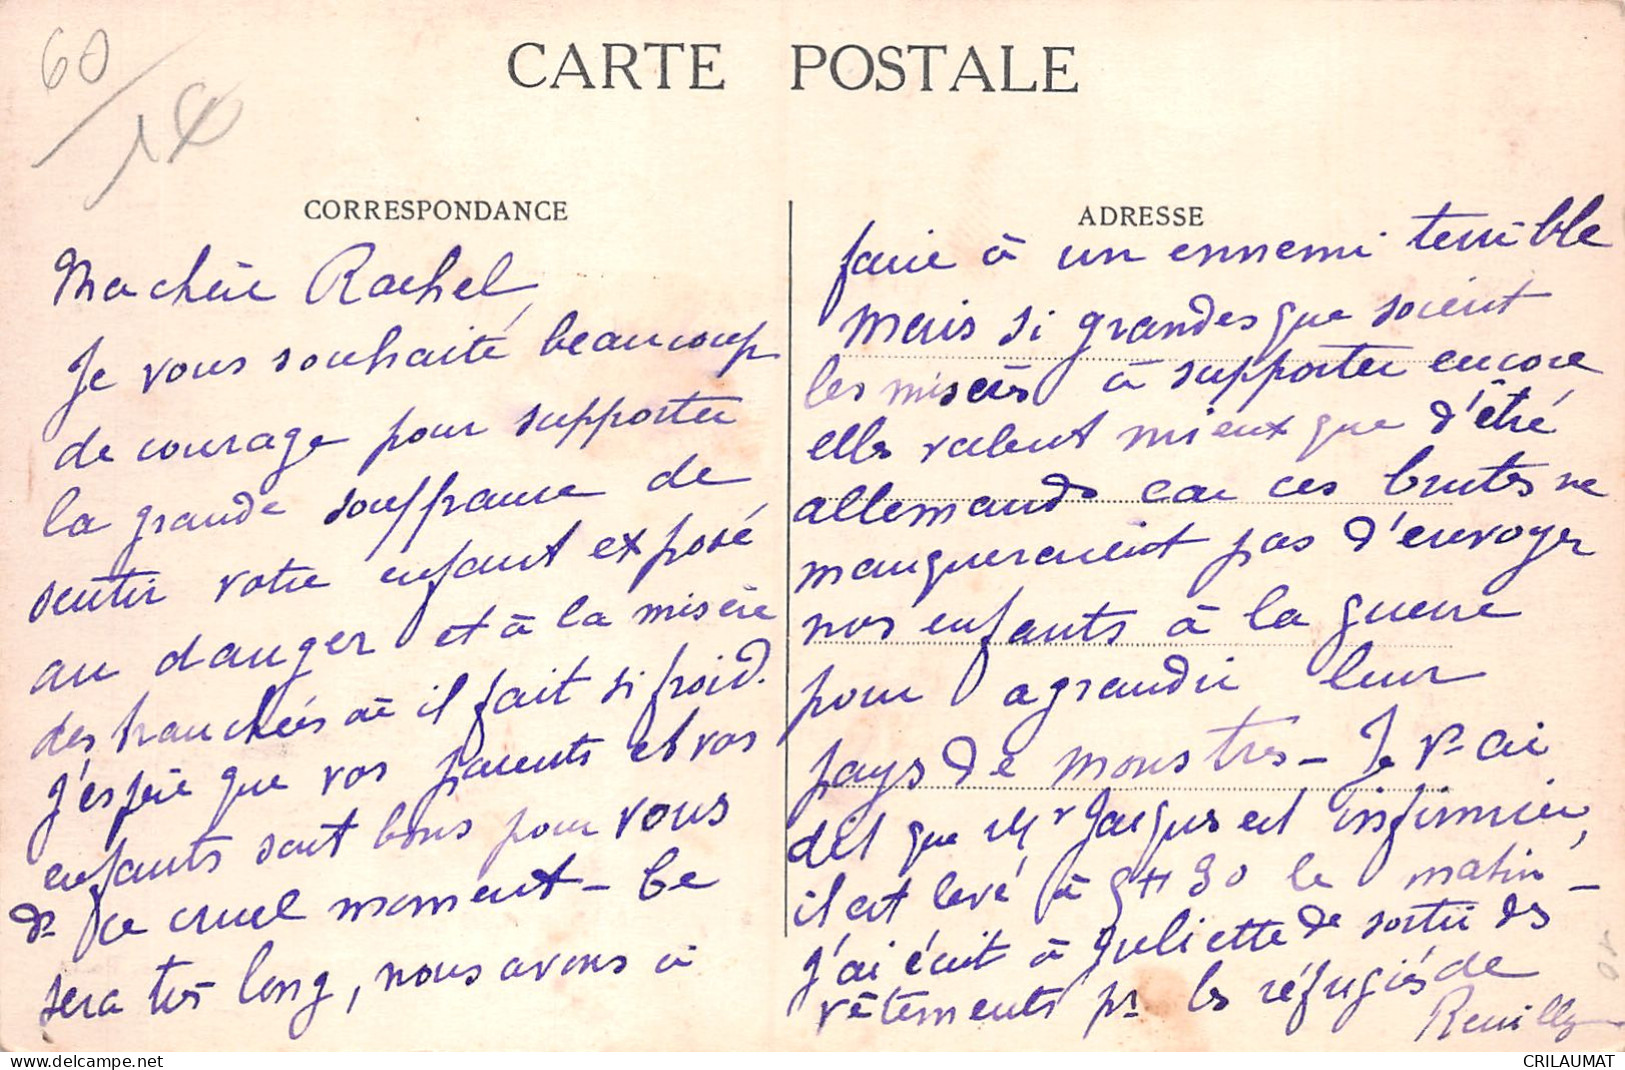 60
CARTE POSTALE
CORRESPONDANCE
Ma chère Rachel,
Je vous souhaite beaucoup
de courage pour supporter
la grande souffrance de
sentir votre enfant exposé
au danger et à la misère
des tranchées où il fait si froid.
J'espère que vos parents et vos
enfants sont bons pour vous
ds ce cruel moment - Ce
sera très long, nous avons à
ADRESSE
faire à un ennemi terrible
Mais si grandes que soient
les misères à supporter encore
elles valent mieux que d'être
allemands car ces brutes ne
manqueraient pas d'envoyer
nos enfants à la guerre
pour agrandir leur
pays de monstres - Je vs ai
dit que Mr Jacques est infirmier,
il est levé à 5H30 le matin -
J'ai écrit à Juliette de sortir des
vêtements pr les réfugiés de
Reuilly
CRILAUMAT